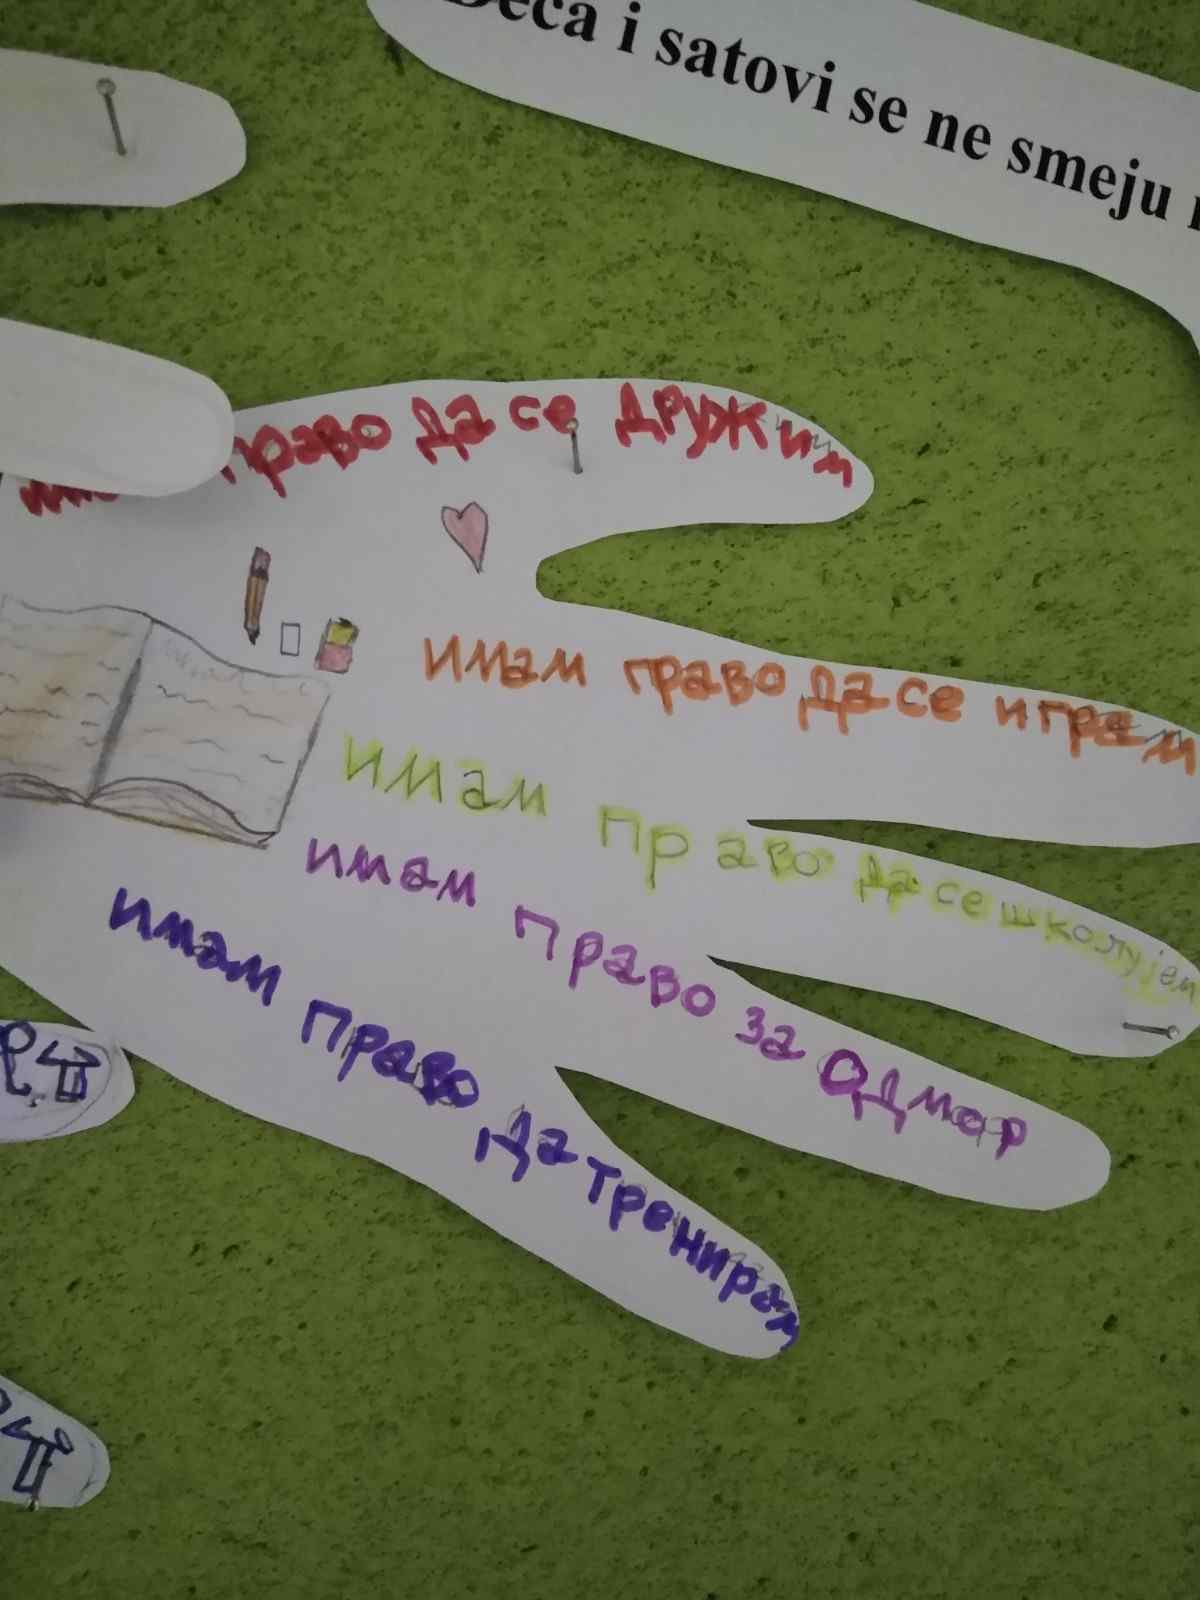 Deca i satovi se ne smeju
право да се дружим
имам право да се играм
имам право да се школујем
имам право за Одмор
имам право да тренирам